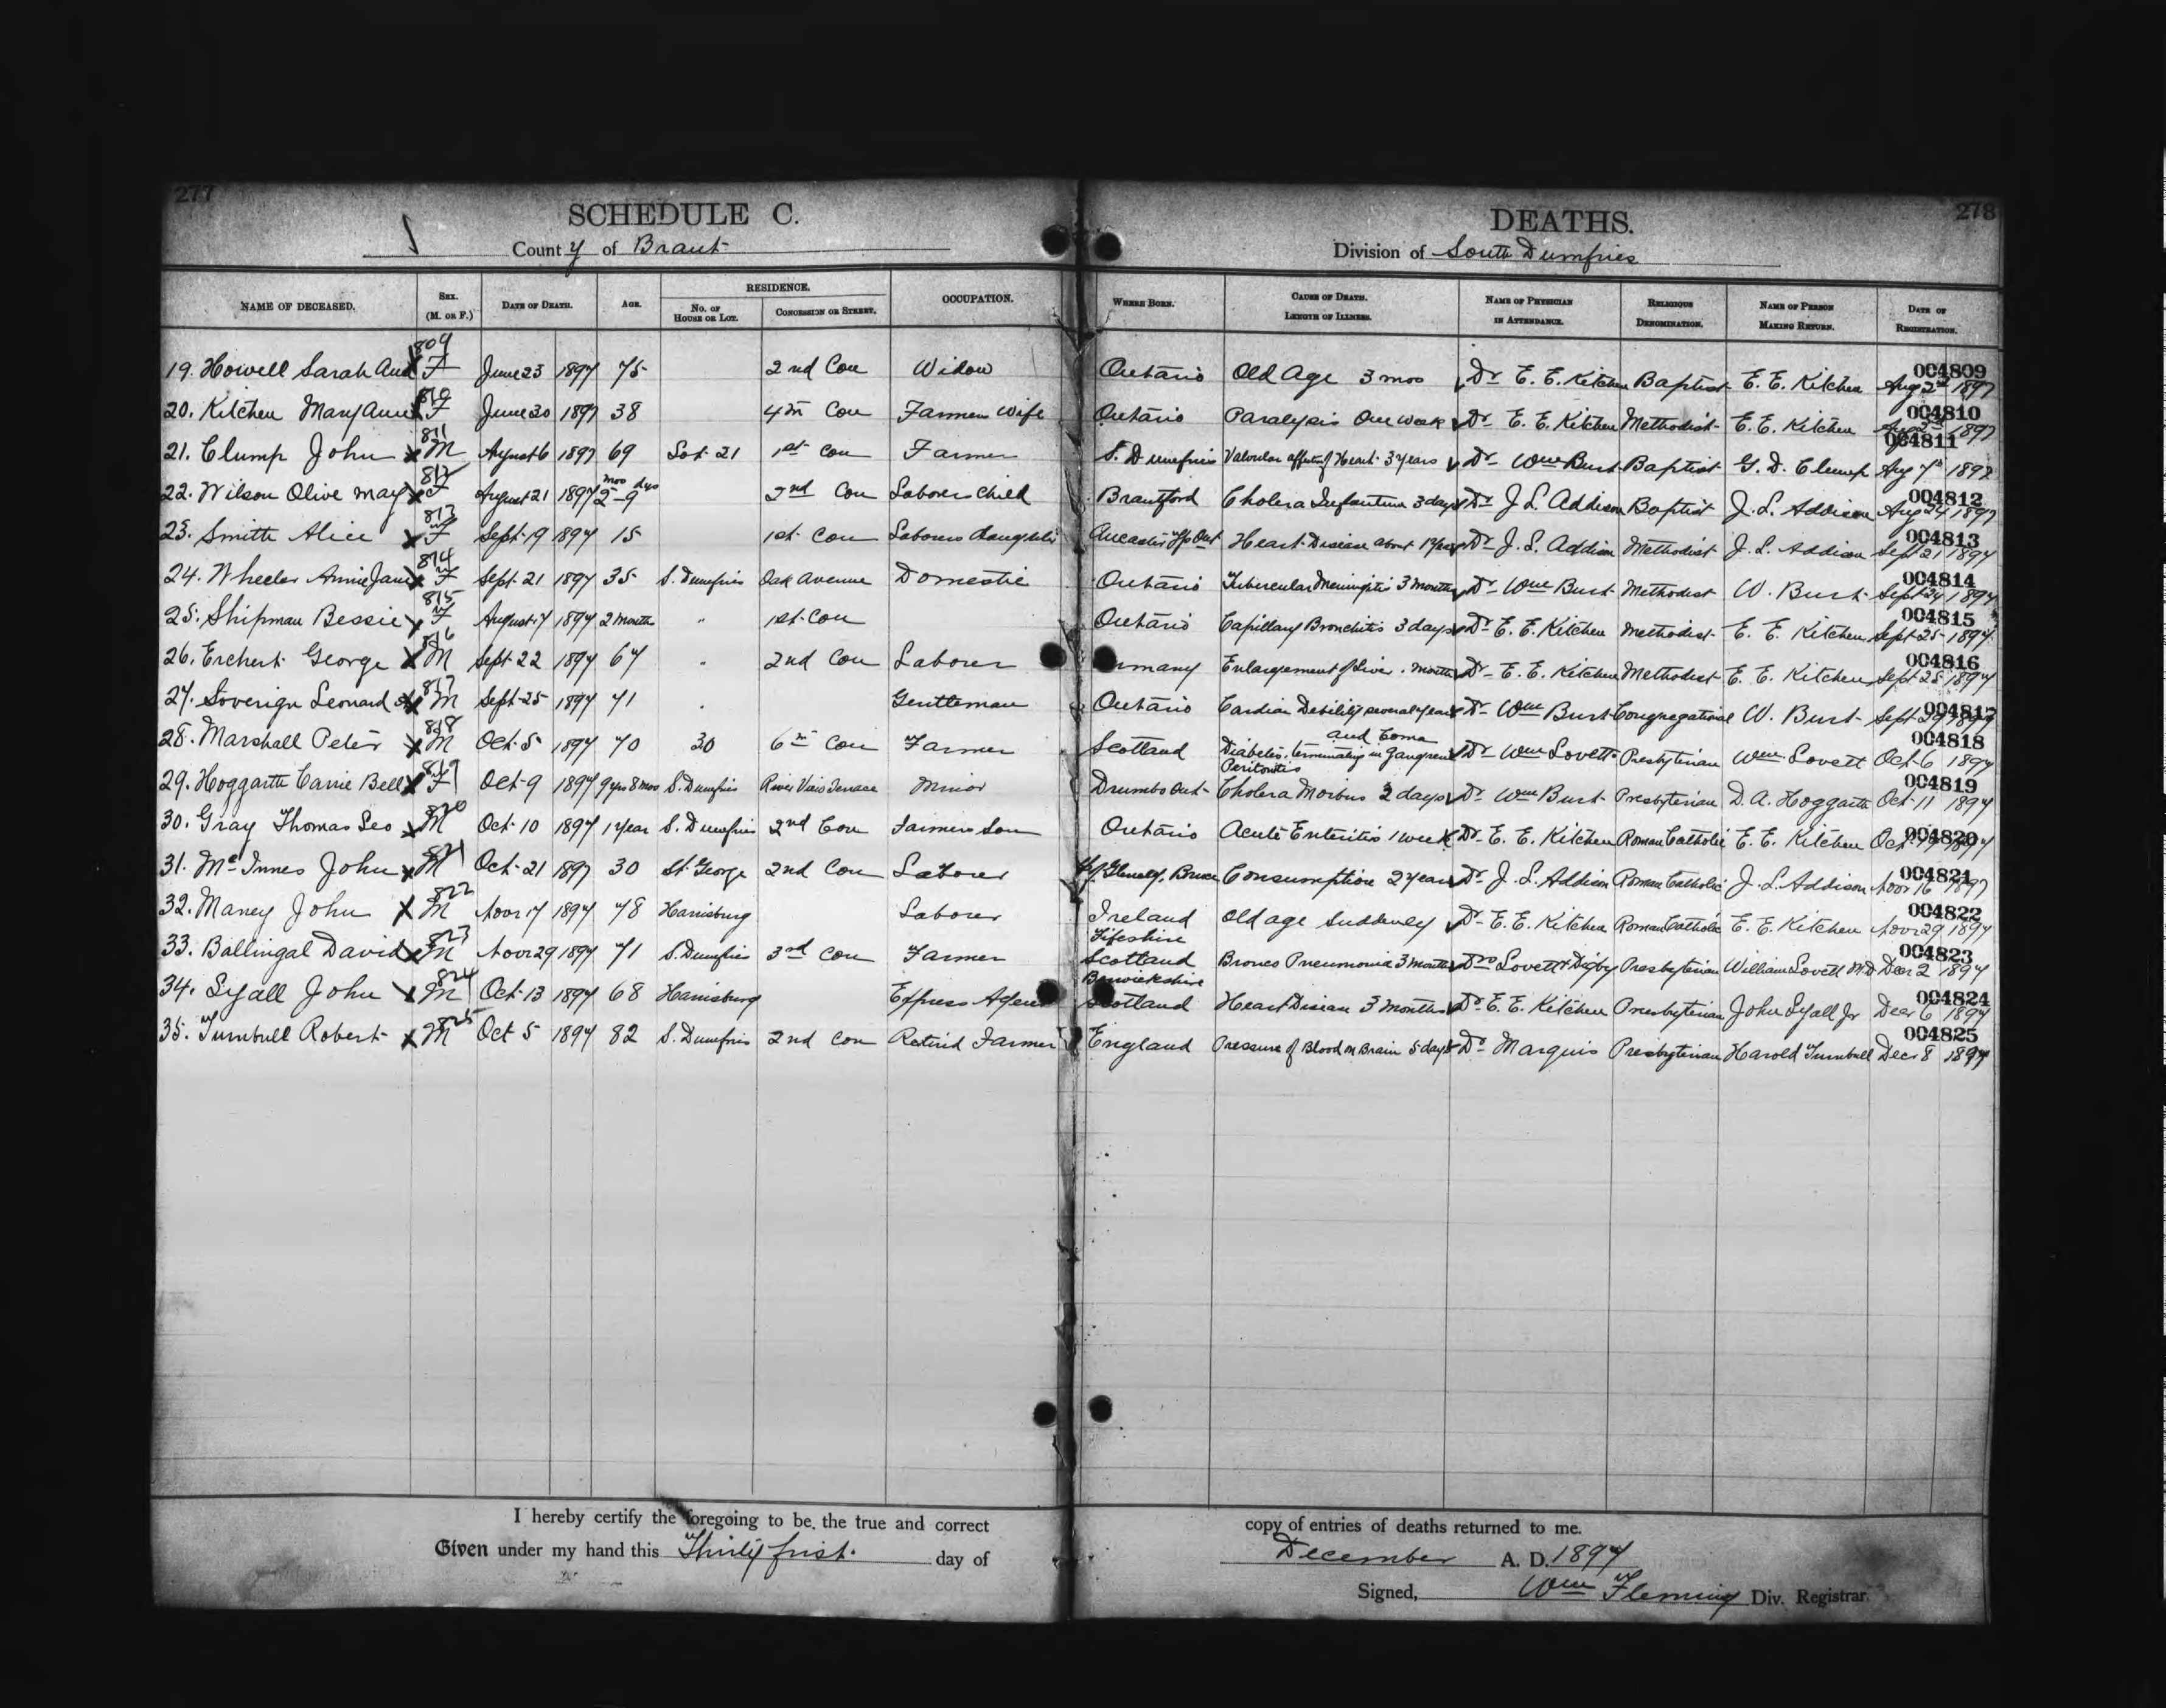 277
278
SCHEDULE C.
DEATHS.
County of Brant
Division of South Dumfries
NAME OF DECEASED. SEX. (M. OR F.) DATE OF DEATH. AGE. RESIDENCE. NO. OF HOUSE OR LOT. CONCESSION OR STREET. OCCUPATION. WHERE BORN. CAUSE OF DEATH. LENGTH OF ILLNESS. NAME OF PHYSICIAN IN ATTENDANCE. RELIGIOUS DENOMINATION. NAME OF PERSON MAKING RETURN. DATE OF REGISTRATION.
809 004809
19. Howell Sarah Ann F June 23 1897 75 2nd Con Widow Ontario Old Age 3 mos Dr E. E. Kitchen Baptist E. E. Kitchen Aug 2nd 1897
810 004810
20. Kitchen Mary Ann F June 30 1897 38 4th Con Farmers Wife Ontario Paralysis One Week Dr E. E. Kitchen Methodist E. E. Kitchen Aug 2nd 1897
811 004811
21. Clump John M August 6 1897 69 Lot 21 1st Con Farmer S. Dumfries Valvular affectn of Heart 3 years Dr Wm Burt Baptist G. D. Clump Aug 7th 1897
812 004812
22. Wilson Olive May F August 21 1897 2 mos 9 dys 2nd Con Laborers Child Brantford Cholera Infantum 3 days Dr J. L. Addison Baptist J. L. Addison Aug 24 1897
813 004813
23. Smith Alice F Sept 19 1897 15 1st Con Labours daughter Ancaster Tp Ont Heart Disease about 1 year Dr J. L. Addison Methodist J. L. Addison Sept 21 1897
814 004814
24. Wheeler Annie Jane F Sept 21 1897 35 S. Dumfries Oak Avenue Domestic Ontario Tubercular Meningitis 3 months Dr Wm Burt Methodist W. Burt Sept 24 1897
815 004815
25. Shipman Bessie F August 7 1897 2 months " 1st Con Ontario Capillary Bronchitis 3 days Dr E. E. Kitchen Methodist E. E. Kitchen Sept 25 1897
816 004816
26. Erchert George M Sept 22 1897 67 " 2nd Con Laborer rmany Enlargement of Liver . months Dr E. E. Kitchen Methodist E. E. Kitchen Sept 25 1897
817 004817
27. Soverign Leonard M Sept 25 1897 71 " Gentleman Ontario Cardiac Debility several years Dr Wm Burt Congregational W. Burt Sept 29 1897
818 and Coma 004818
28. Marshall Peter M Oct 5 1897 70 30 6th Con Farmer Scotland Diabetes, terminating in Gangrene Dr Wm Lovett Presbyterian Wm Lovett Oct 6 1897
819 Peritonitis 004819
29. Hoggarth Carrie Bell F Oct 9 1897 9 yrs 8 mos S. Dumfries River View Terrace Minor Drumbo Ont Cholera Morbus 2 days Dr Wm Burt Presbyterian D. A. Hoggarth Oct 11 1897
820 004820
30. Gray Thomas Leo M Oct 10 1897 1 year S. Dumfries 2nd Con Farmers Son Ontario Acute Enteritis 1 week Dr E. E. Kitchen Roman Catholic E. E. Kitchen Oct 1897
821 004821
31. Mc Innes John M Oct 21 1897 30 St. George 2nd Con Laborer Bruce Consumption 2 years Dr J. L. Addison Roman Catholic J. L. Addison Novr 16 1897
822 004822
32. Maney John M Novr 17 1897 78 Harrisburg Laborer Ireland Old age Suddenly Dr E. E. Kitchen Roman Catholic E. E. Kitchen Novr 29 1897
823 Fifeshire 004823
33. Ballingal David M Novr 29 1897 71 S. Dumfries 3rd Con Farmer Scotland Bronco Pneumonia 3 months Drs Lovett & Digby Presbyterian William Lovett M.D Decr 2 1897
824 Berwickshire 004824
34. Lyall John M Oct 13 1897 68 Harrisburg Express Agent Scotland Heart Disease 3 months Dr E. E. Kitchen Presbyterian John Lyall Jr Decr 6 1897
825 004825
35. Turnbull Robert M Oct 5 1897 82 S. Dumfries 2nd Con Retired Farmer England Pressure of Blood on Brain 5 days Dr Marquis Presbyterian Harold Turnbull Decr 8 1897
I hereby certify the foregoing to be the true and correct copy of entries of deaths returned to me.
Given under my hand this Thirty first day of December A. D. 1897
Signed, Wm Fleming Div. Registrar.